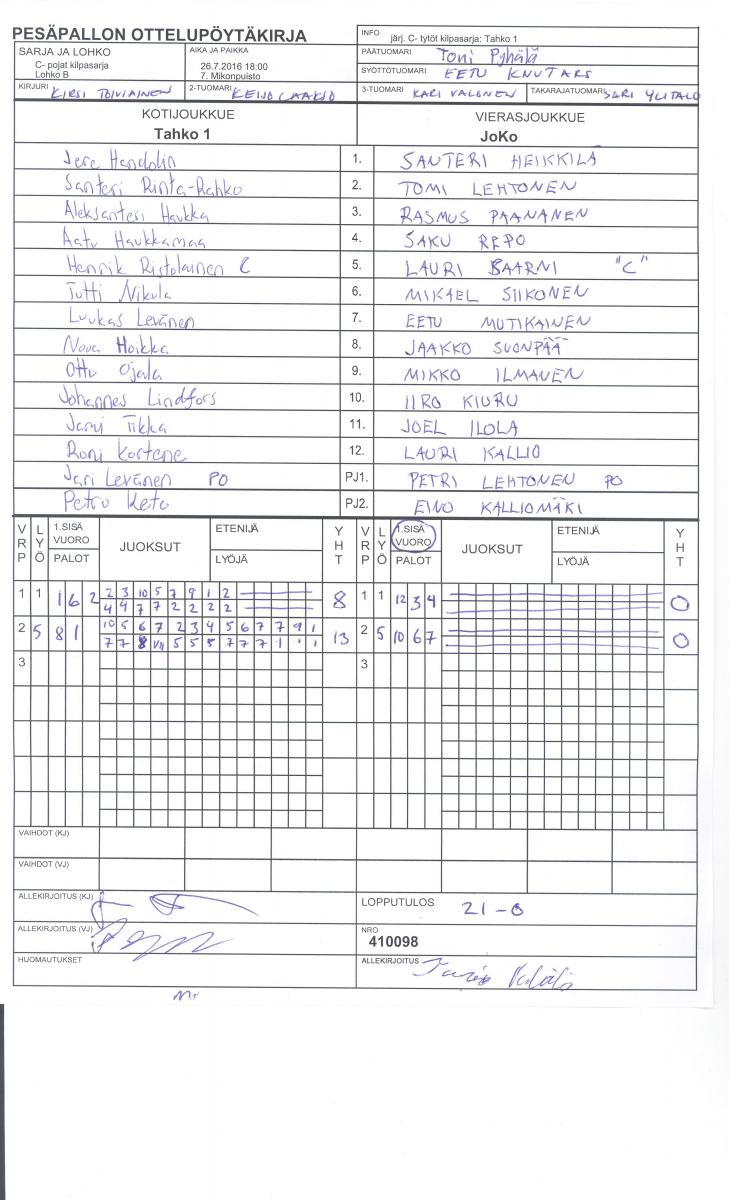 PESÄPALLON OTTELUPÖYTÄKIRJA
INFO järj. C- tytöt kilpasarja: Tahko 1
SARJA JA LOHKO
C- pojat kilpasarja
Lohko B
AIKA JA PAIKKA
26.7.2016 18:00
7. Mikonpuisto
PÄÄTUOMARI Toni Pyhälä
SYÖTTÖTUOMARI EETU KNUTARS
KIRJURI KIRSI TOIVIAINEN
2-TUOMARI KEIJO LAAKSO
3-TUOMARI KARI VALONEN
TAKARAJATUOMARI SARI YLITALO
KOTIJOUKKUE
Tahko 1
VIERASJOUKKUE
JoKo
Jere Handolin 1. SANTERI HEIKKILÄ
Santeri Rinta-Rahko 2. TOMI LEHTONEN
Aleksanteri Haukka 3. RASMUS PAANANEN
Aatu Haukkamaa 4. SAKU REPO
Henrik Ristolainen C 5. LAURI BAARNI "C"
Tutti Nikula 6. MIKAEL SIIKONEN
Luukas Levänen 7. EETU MUTIKAINEN
Nova Hoikka 8. JAAKKO SUONPÄÄ
Otto Ojala 9. MIKKO ILMANEN
Johannes Lindfors 10. IIRO KIURU
Jami Tikka 11. JOEL ILOLA
Roni Kortene 12. LAURI KALLIO
Jari Levänen PO PJ1. PETRI LEHTONEN PO
Petru Keto PJ2. EINO KALLIOMÄKI
VRP LYÖ 1.SISÄ VUORO PALOT JUOKSUT ETENIJÄ LYÖJÄ YHT VRP LYÖ 1.SISÄ VUORO PALOT JUOKSUT ETENIJÄ LYÖJÄ YHT
1 1 1 6 2 2 3 10 5 7 9 1 2 8 1 1 12 3 4 0
4 4 7 7 2 2 2 2
2 5 8 1 10 5 6 7 2 3 4 5 6 7 7 9 1 13 2 5 10 6 7 0
7 7 8 VII 5 5 5 7 7 7 1 1 1
3 3
VAIHDOT (KJ)
VAIHDOT (VJ)
ALLEKIRJOITUS (KJ)
LOPPUTULOS 21-0
ALLEKIRJOITUS (VJ)
NRO
410098
HUOMAUTUKSET
ALLEKIRJOITUS